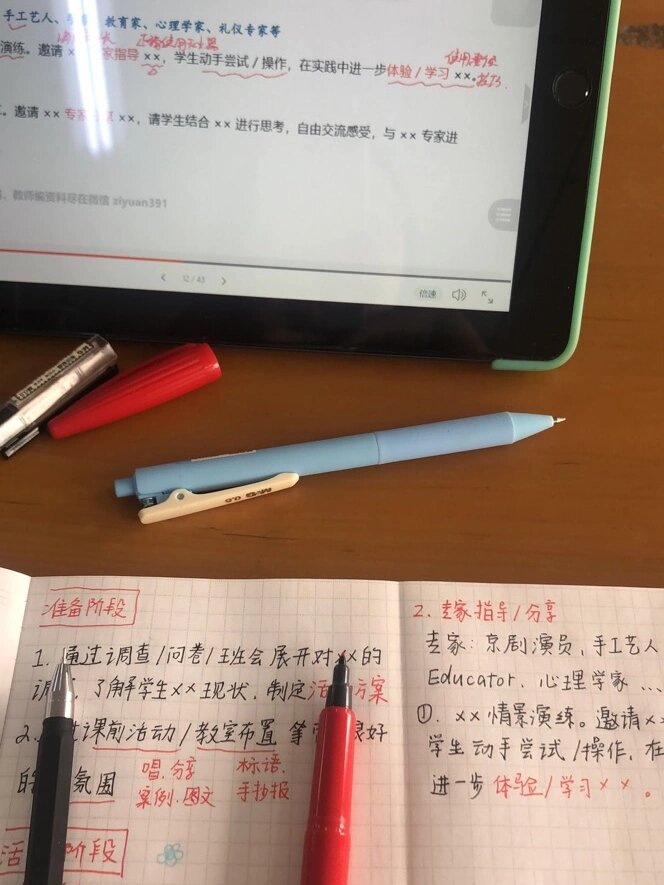 手工艺人、 教育家、心理学家、礼仪专家等
演练。邀请 ×× 家指导 ××，学生动手尝试/操作，在实践中进一步体验/学习 ××。
邀请 ×× 专家 ××，请学生结合 ×× 进行思考，自由交流感受，与 ×× 专家进
教师编资料尽在微信 ziyuan391
12/43
倍速
M&G 0.5
准备阶段
1. 通过调查/问卷/班会 展开对××的
了解学生××现状，制定活 方案
2. 课前活动/教室布置 等 良好
的 氛围
唱.分享 标语.
案例.图文 手抄报
活 阶段
2. 专家指导/分享
专家：京剧演员，手工艺人
Educator. 心理学家 ...
①. ××情景演练。邀请××
学生动手尝试/操作，在
进一步 体验/学习××。